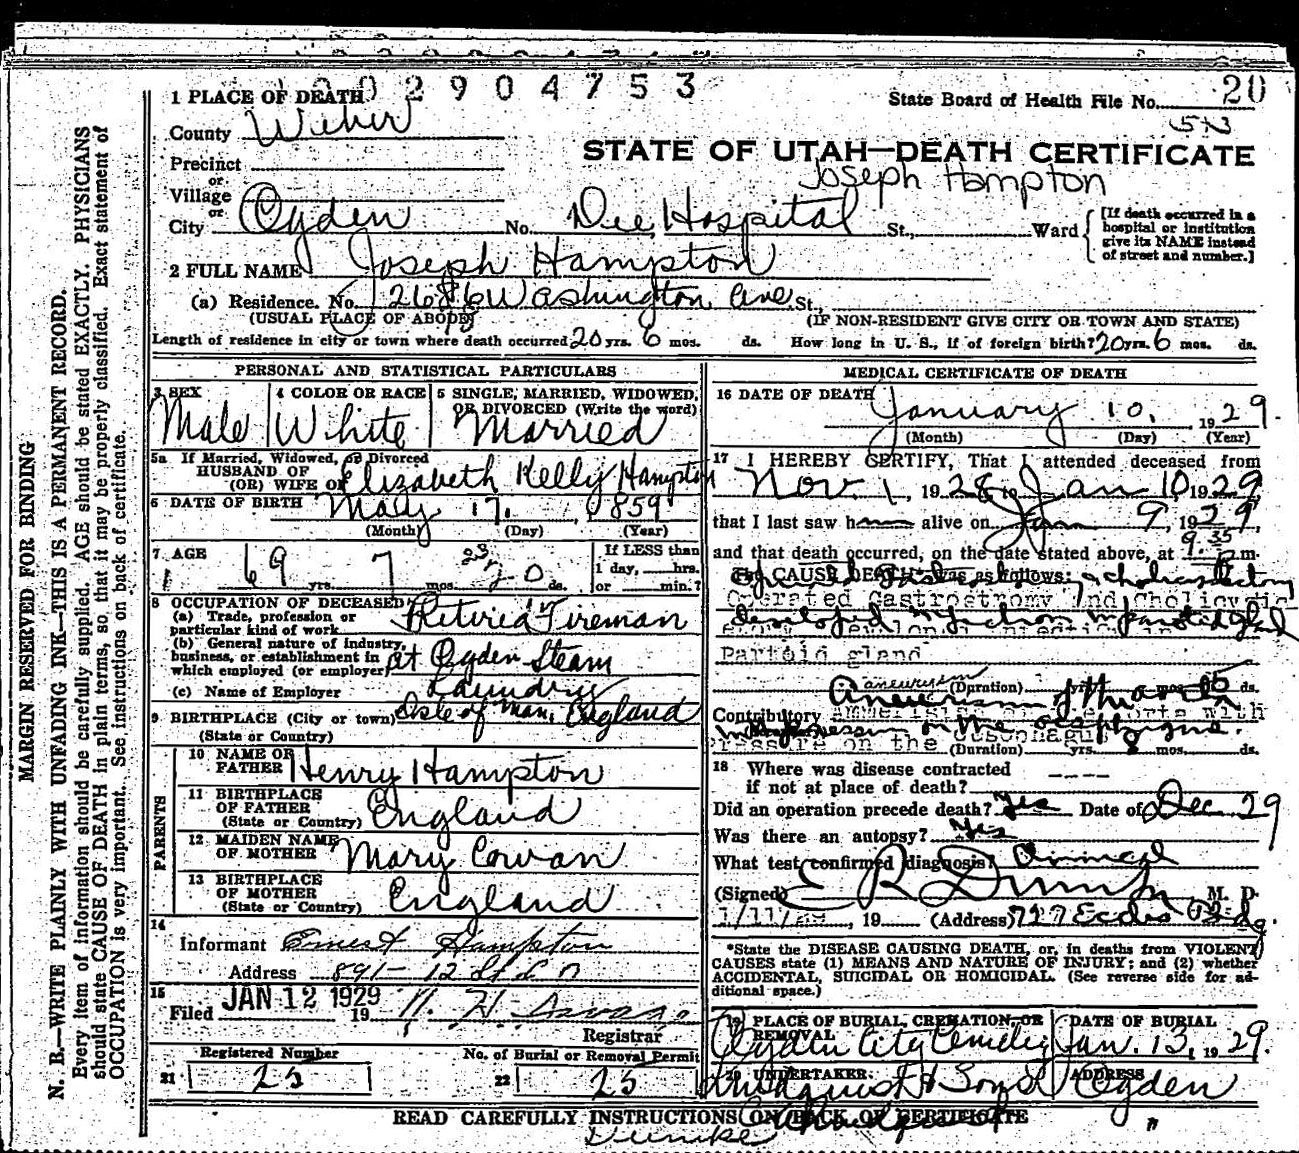 002904753
1 PLACE OF DEATH
State Board of Health File No. 20
County Weber
Precinct
or
Village
STATE OF UTAH—DEATH CERTIFICATE
Joseph Hampton
or
City Ogden No. Dee Hospital St., Ward
[If death occurred in a
hospital or institution
give its NAME instead
of street and number.]
2 FULL NAME Joseph Hampton
(a) Residence. No. Washington Ave St.,
(USUAL PLACE OF ABODE)
(IF NON-RESIDENT GIVE CITY OR TOWN AND STATE)
Length of residence in city or town where death occurred 20 yrs. 6 mos. ds. How long in U. S., if of foreign birth? 20 yrs. 6 mos. ds.
PERSONAL AND STATISTICAL PARTICULARS
3 SEX
Male
4 COLOR OR RACE
White
5 SINGLE, MARRIED, WIDOWED,
OR DIVORCED (Write the word)
Married
5a If Married, Widowed, or Divorced
HUSBAND OF
(OR) WIFE OF Elizabeth Kelly Hampton
6 DATE OF BIRTH May 17, 1859
(Month) (Day) (Year)
7 AGE
69 yrs. 7 mos. 23 ds.
If LESS than
1 day, hrs.
or min.?
8 OCCUPATION OF DECEASED
(a) Trade, profession or
particular kind of work Retired Fireman
(b) General nature of industry,
business, or establishment in
which employed (or employer) at Ogden Steam
Laundry
(c) Name of Employer
9 BIRTHPLACE (City or town) Isle of Man, England
(State or Country)
PARENTS
10 NAME OF
FATHER Henry Hampton
11 BIRTHPLACE
OF FATHER
(State or Country) England
12 MAIDEN NAME
OF MOTHER Mary Cowan
13 BIRTHPLACE
OF MOTHER
(State or Country) England
14
Informant Ernest Hampton
Address 891- 12 St
15
Filed JAN 12 1929 19
Registrar
Registered Number
21 25
No. of Burial or Removal Permit
22 25
MEDICAL CERTIFICATE OF DEATH
16 DATE OF DEATH
January 10, 1929.
(Month) (Day) (Year)
17 I HEREBY CERTIFY, That I attended deceased from
Nov. 1, 1928 to Jan 10 1929
that I last saw h alive on Jan 9, 1929,
and that death occurred, on the date stated above, at 9:35 m.
The CAUSE DEATH* was as follows:
Operated Gastrostomy and
developed infection in parotid gland
Partoid gland
aneurysm
(Duration) yrs. mos. 5 ds.
Aneurism of the aorta
Contributory
pressure on the esophagus
(Duration) yrs. mos. ds.
18 Where was disease contracted
if not at place of death?
Did an operation precede death? Yes Date of Dec 29
Was there an autopsy? Yes
What test confirmed diagnosis?
(Signed) E R Dumke M. D.
1/11/29, 19 (Address) 727 Eccles Bldg.
*State the DISEASE CAUSING DEATH, or, in deaths from VIOLENT
CAUSES state (1) MEANS AND NATURE OF INJURY; and (2) whether
ACCIDENTAL, SUICIDAL OR HOMICIDAL. (See reverse side for ad-
ditional space.)
19 PLACE OF BURIAL, CREMATION OR
REMOVAL
Ogden City Cemetery
DATE OF BURIAL
Jan. 13, 1929.
20 UNDERTAKER
Lindquist & Sons
ADDRESS
Ogden
READ CAREFULLY INSTRUCTIONS ON BACK OF CERTIFICATE
Dumke
MARGIN RESERVED FOR BINDING
N. B.—WRITE PLAINLY WITH UNFADING INK—THIS IS A PERMANENT RECORD.
Every item of information should be carefully supplied. AGE should be stated EXACTLY. PHYSICIANS
should state CAUSE OF DEATH in plain terms, so that it may be properly classified. Exact statement of
OCCUPATION is very important. See instructions on back of certificate.